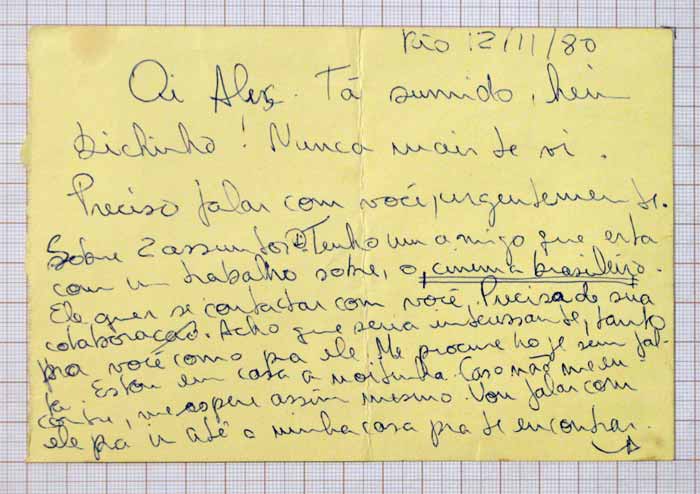 Rio 12/11/80
Oi Alex. Tá sumido, hein
bichinho! Nunca mais te vi.
Preciso falar com você, urgentemente.
Sobre 2 assuntos: ① Tenho um amigo que esta
com um trabalho sobre, o cinema brasileiro.
Ele quer se contactar com você. Precisa de sua
colaboração. Acho que seria interessante, tanto
pra você como pra ele. Me procure hoje sem fal-
ta. Estou em casa a noitinha. Caso não me en-
contre, me espere assim mesmo. Vou falar com
ele pra ir até a minha casa pra te encontrar.